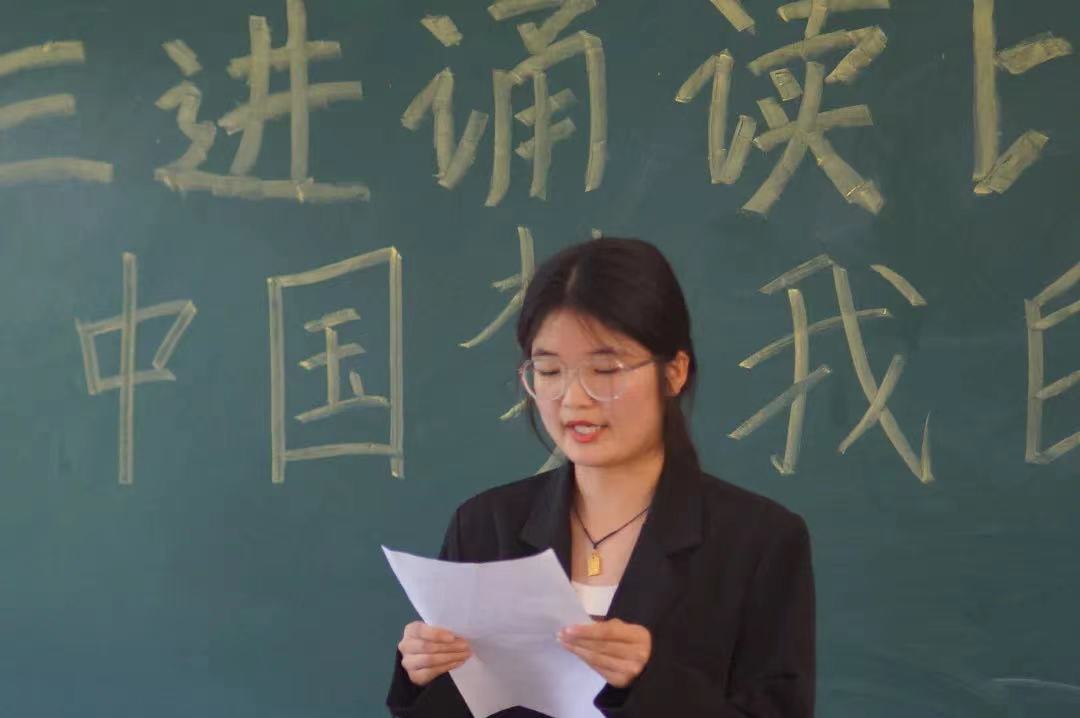 三进诵读
中国 我